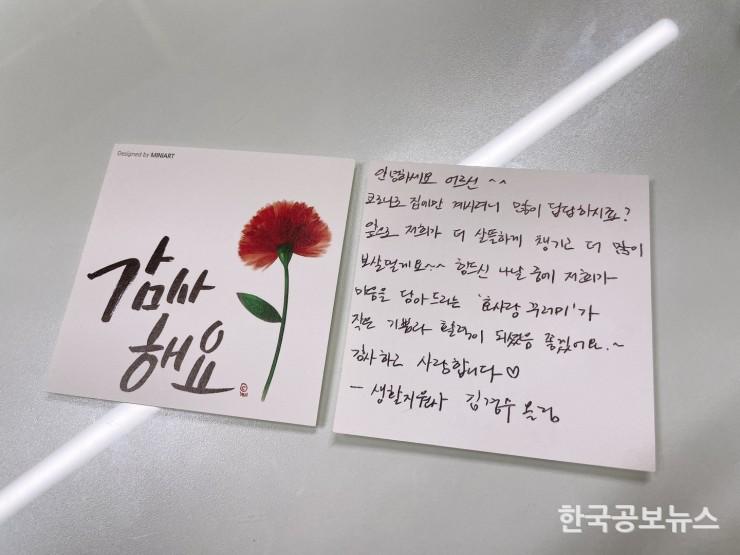 Designed by MINIART
감사
해요
안녕하세요 어르신 ^^
코로나로 집에만 계시려니 많이 답답하시죠?
앞으로 저희가 더 살뜰하게 챙기고 더 많이
보살필게요~~ 힘드신 나날 중에 저희가
마음을 담아 드리는 '효사랑 꾸러미'가
작은 기쁨과 활력이 되셨음 좋겠어요.~
감사하고 사랑합니다♡
- 생활지원사 김경수 올림
한국공보뉴스